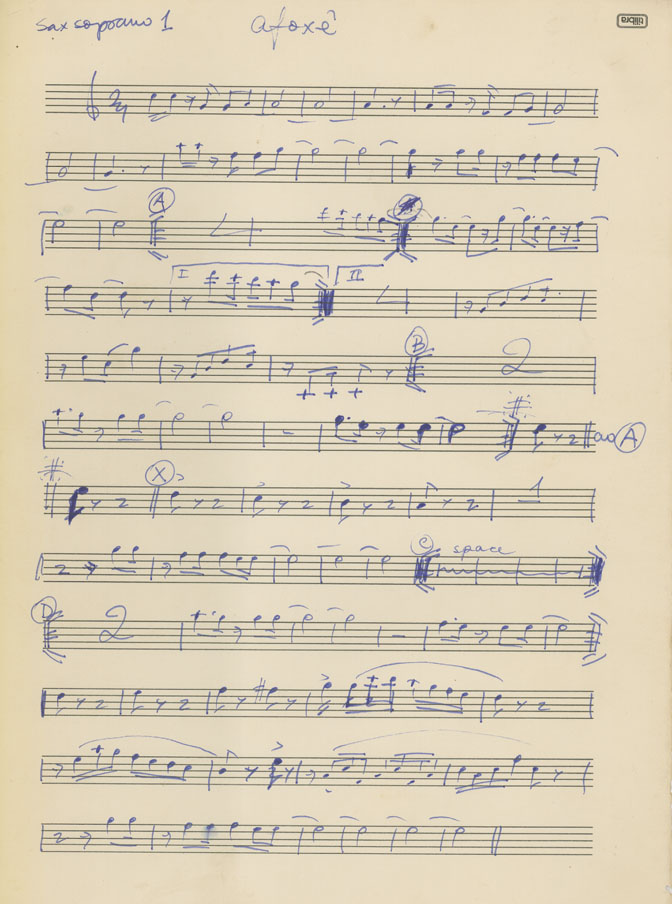 sax soprano 1 afoxê tilibra
A 4
I II 4
B 2
ao A
X 1
C space
D 2